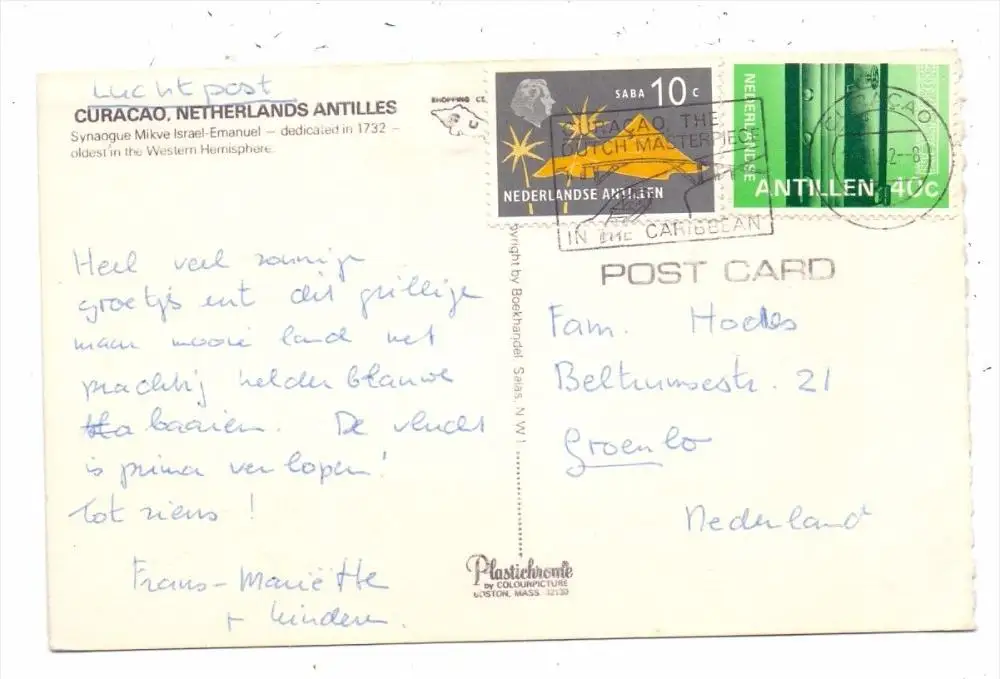 Luchtpost
CURACAO, NETHERLANDS ANTILLES
Synaogue Mikve Israel-Emanuel – dedicated in 1732 –
oldest in the Western Hemisphere.
SHOPPING CE
SABA 10 C
NEDERLANDSE ANTILLEN
NEDERLANDSE
ANTILLEN 40c
CURAÇAO, THE
DUTCH MASTERPIECE
IN THE CARIBBEAN
CURAÇAO
POST CARD
Heel veel zonnige
groetjes uit dit grillige
maar mooie land met
prachtig helder blauwe
baaien. De vlucht
is prima verlopen!
Tot ziens!
Frans-Mariëtte
+ kinderen.
pyright by Boekhandel Salas, N W I
Fam. Hodes
Beltrumsestr. 21
Groenlo
Nederland
Plastichrome
by COLOURPICTURE
BOSTON, MASS. 02130